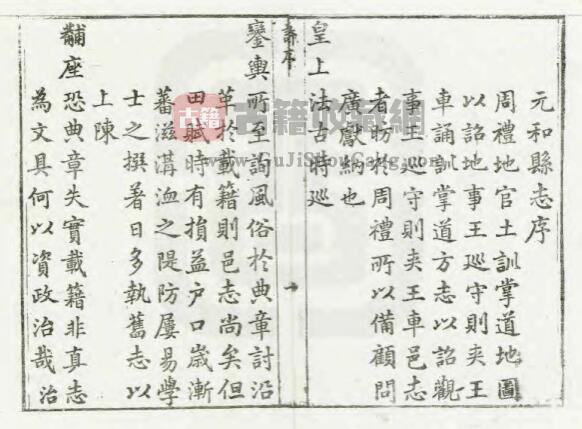 元和縣志序
周禮地官土訓掌道地圖
以詔地事王巡守則夾王
車誦訓掌道方志以詔觀
事王巡守則夾王車邑志
者昉於周禮所以備顧問
廣獻納也
皇上法古時巡
序
鑾輿所至詢風俗於典章討沿
革於載籍則邑志尚矣但
田賦時有損益户口歲漸
蕃滋溝洫之隄防屢易學
士之撰著日多執舊志以
上陳
黼座恐典章失實載籍非真志
為文具何以資政治哉治
古籍
古籍收藏網
www.GuJiShouCang.com